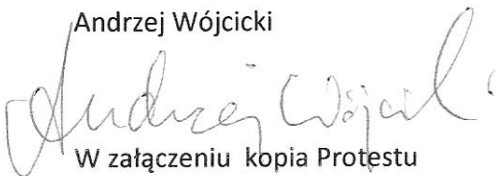 Andrzej Wójcicki
Andrzej Wójcicki
W załączeniu kopia Protestu